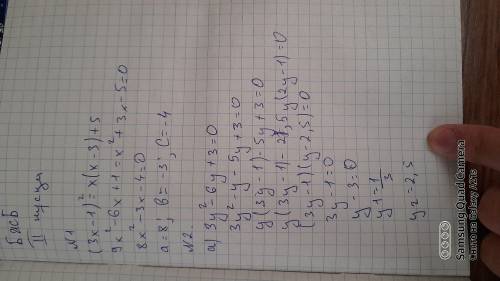 БЖБ
II нұсқа
№1
(3x-1)² = x(x-3)+5
9x²-6x+1=x²+3x-5=0
8x²-3x-4=0
a=8; b=-3; c=-4
№2
а) 3y²-6y+3=0
3y²-y-5y+3=0
y(3y-1)-5y+3=0
y(3y-1)-2,5y(2y-1)=0
(3y-1)(y-2,5)=0
3y-1=0
y-3=0
y₁=1/3
y₂=2,5
Samsung Quad Camera
Снято на Galaxy A21s